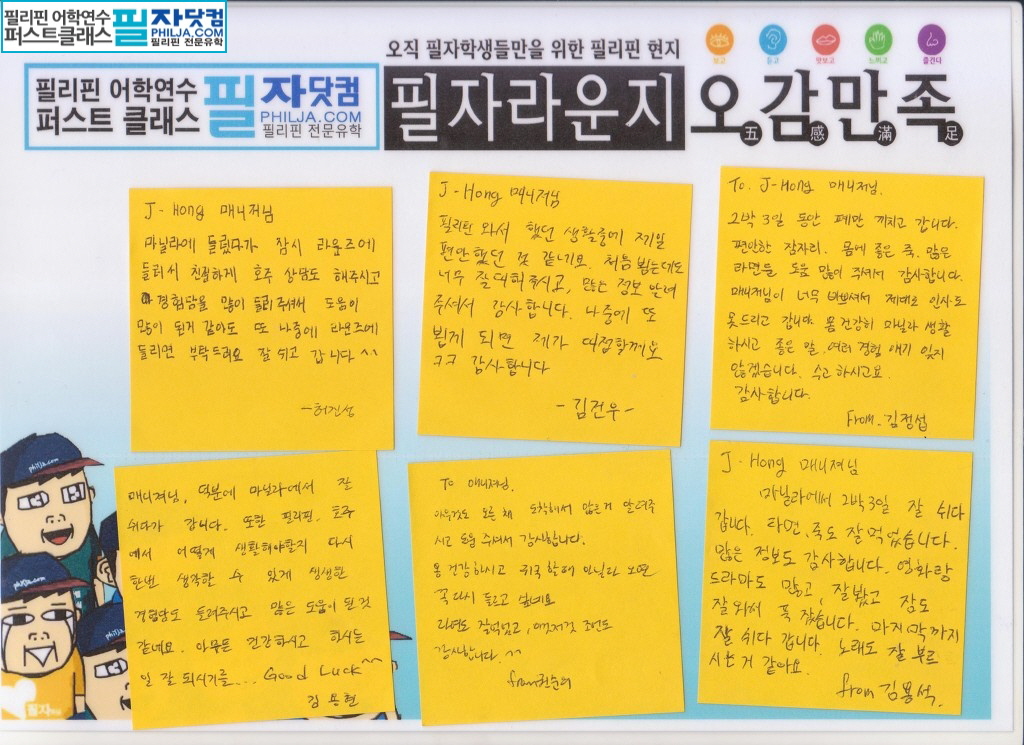 필리핀 어학연수
퍼스트클래스
필자닷컴
PHILJA.COM
필리핀 전문유학
오직 필자학생들만을 위한 필리핀 현지
보고
듣고
맛보고
느끼고
즐긴다
필리핀 어학연수
퍼스트 클래스
필자닷컴
PHILJA.COM
필리핀 전문유학
필자라운지
오감만족
五 感 滿 足
J-Hong 매니저님
마닐라에 들렸다가 잠시 라운즈에
들러서 친절하게 호주 상담도 해주시고
경험담을 많이 들려주셔서 도움이
많이 된거 같아요 또 나중에 라운즈에
들리면 부탁드려요 잘 쉬고 갑니다 ^^
-허진성
J-Hong 매니저님
필리핀 와서 했던 생활중에 제일
편안했던 것 같네요. 처음 뵙는데도
너무 잘대해주시고, 많은 정보 알려
주셔서 감사합니다. 나중에 또
뵙게 되면 제가 대접할께요
ㅋㅋ 감사합니다
-김건우-
To. J-Hong 매니저님.
2박 3일 동안 폐만 끼치고 갑니다.
편안한 잠자리. 몸에 좋은 죽. 많은
라면을 도움 많이 주셔서 감사합니다.
매니저님이 너무 바쁘셔서 제대로 인사도
못드리고 갑니다. 몸 건강히 마닐라 생활
하시고 좋은 말, 여러 경험 얘기 잊지
않겠습니다. 수고 하시고요.
감사합니다.
from. 김정섭
매니져님, 덕분에 마닐라에서 잘
쉬다가 갑니다. 또한 필리핀, 호주
에서 어떻게 생활해야할지 다시
한번 생각할 수 있게 생생한
경험담도 들려주시고 많은 도움이 된것
같네요. 아무튼 건강하시고 하시는
일 잘 되시기를... Good Luck^^
김용현
To 매니저님.
아무것도 모른 채 도착해서 많은거 알려주
시고 도움 주셔서 감사합니다.
몸 건강하시고 귀국할때 마닐라 오면
꼭 다시 들르고 싶네요
라면도 잘먹었고, 이것저것 조언도
감사합니다. ^^
from
J-Hong 매니져님
마닐라에서 2박3일 잘 쉬다
갑니다. 라면, 죽도 잘먹었습니다.
많은 정보도 감사합니다. 영화랑
드라마도 많고, 잘봤고 잠도
잘와서 푹 잤습니다. 마지막까지
잘 쉬다 갑니다. 노래도 잘 부르
시는거 같아요.
from 김용석.
philja.com
philja.com
필자